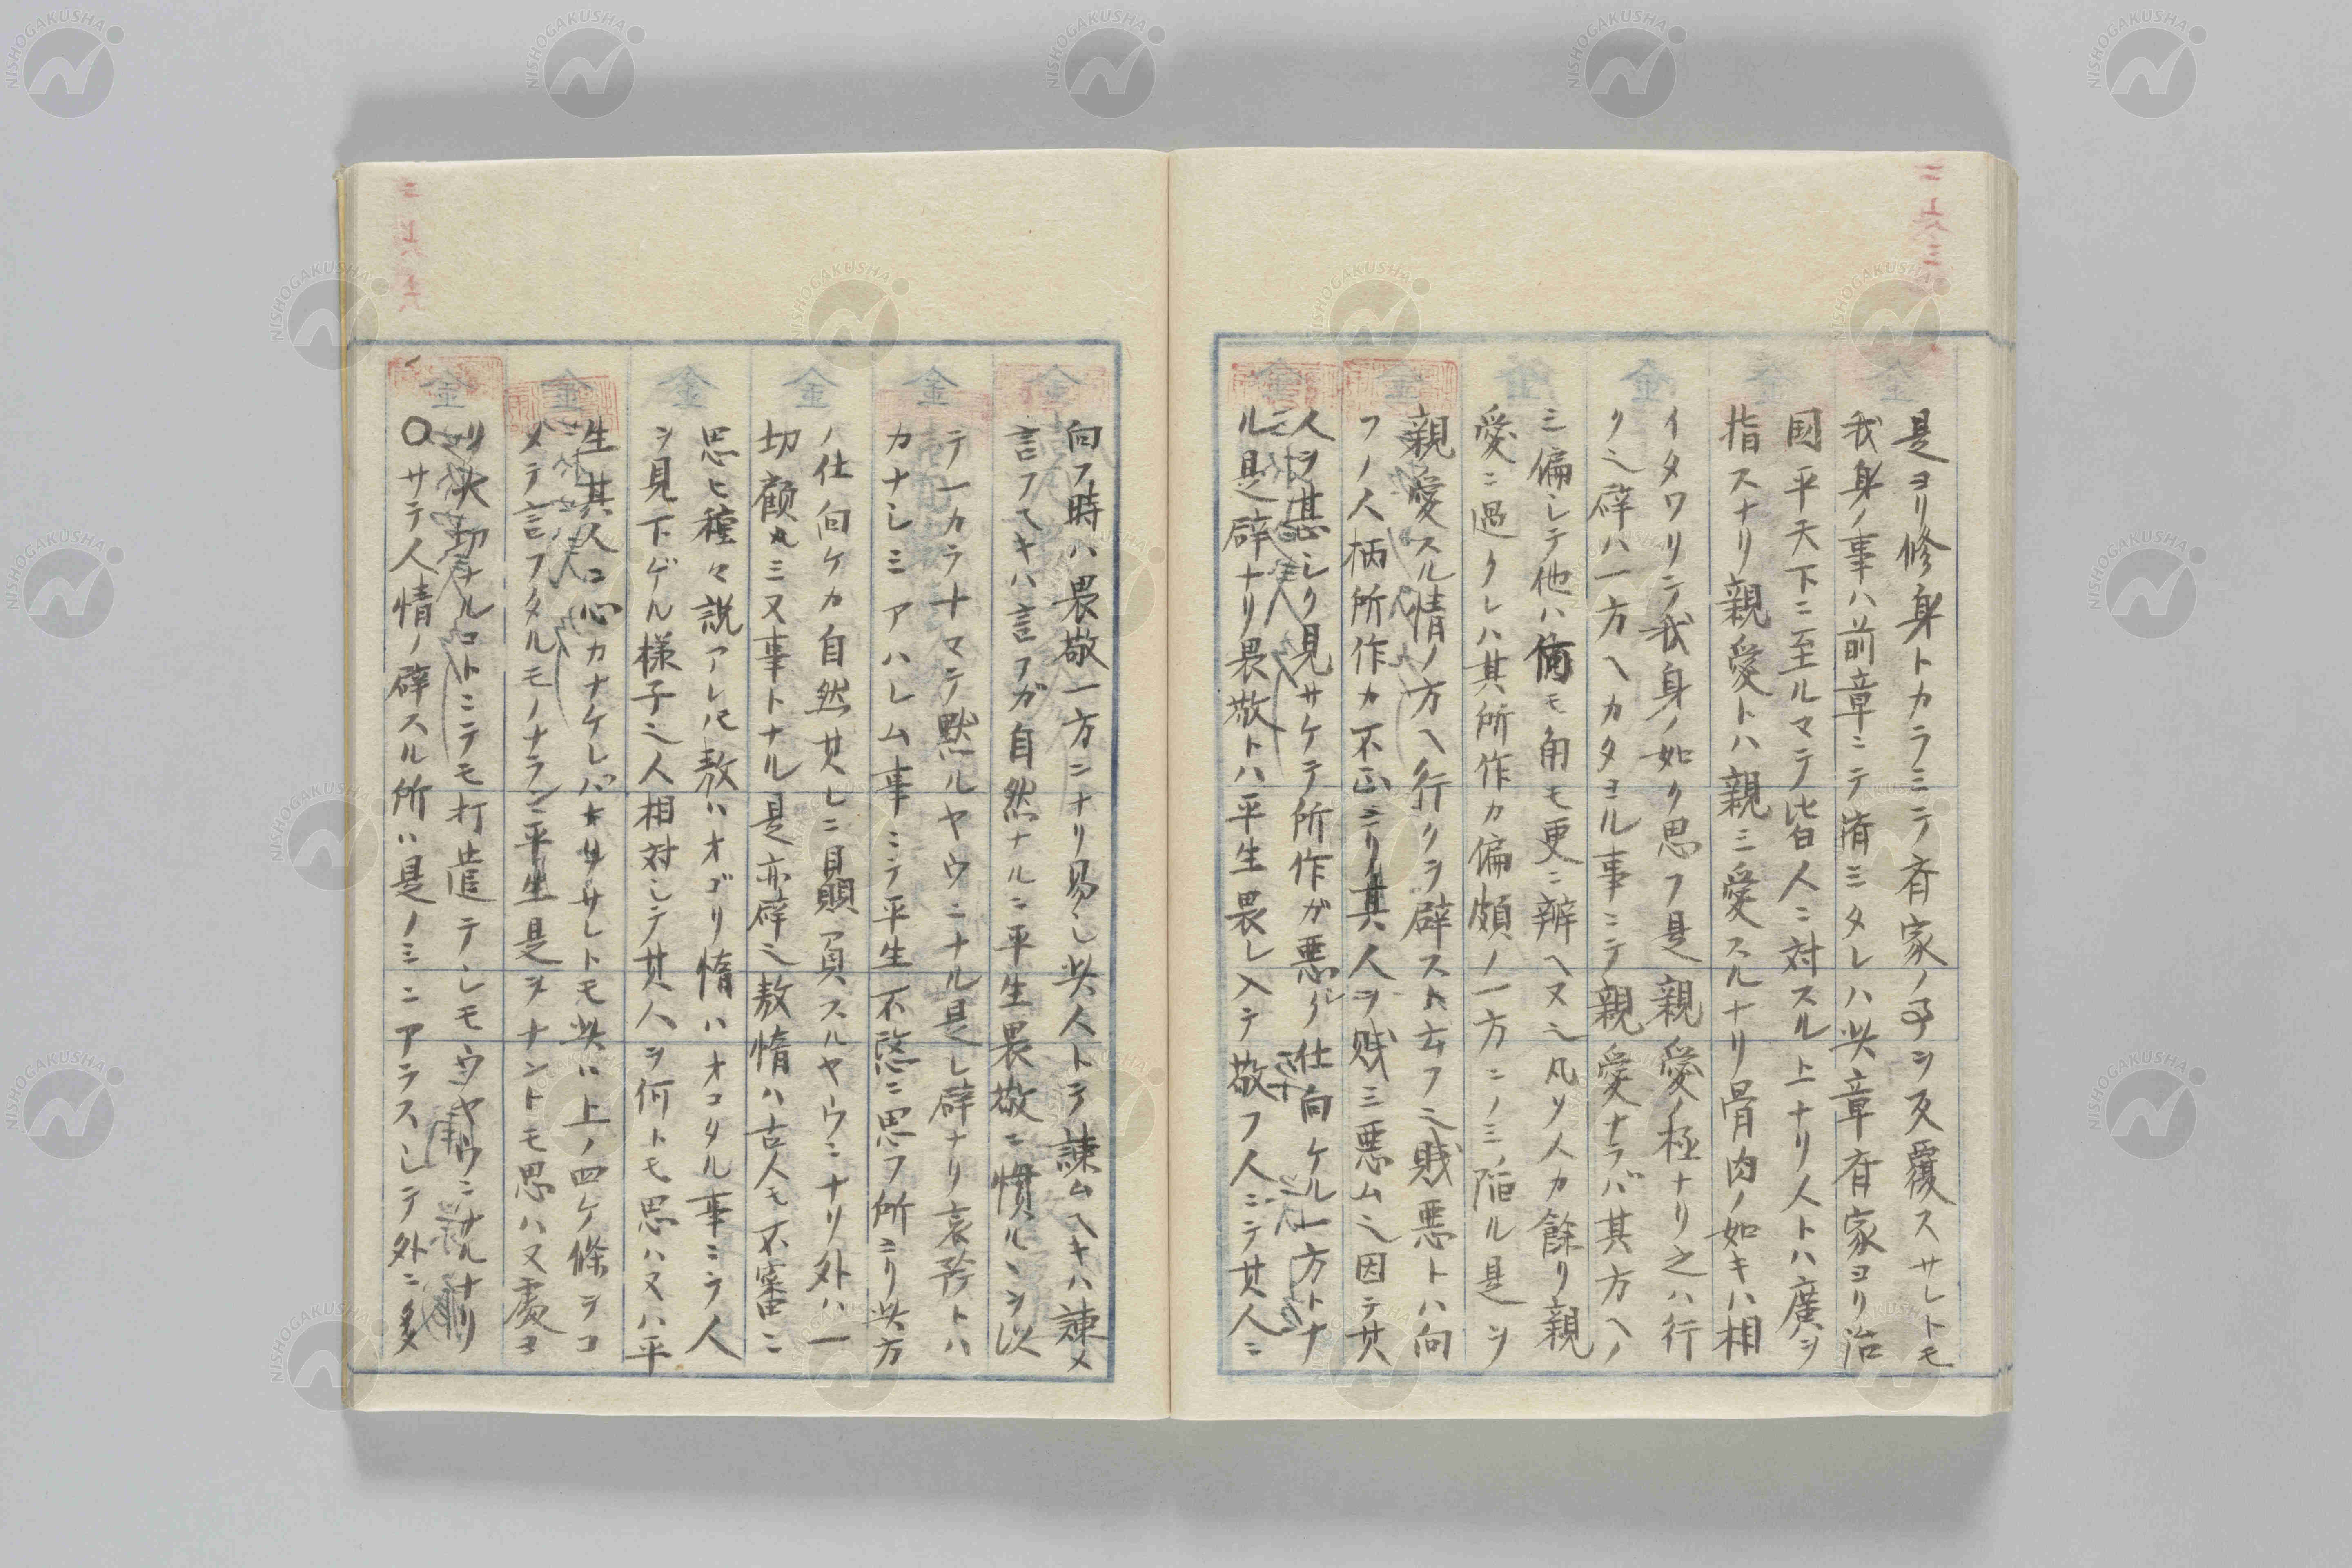 是ヨリ修身トカラミテ斉家ノ事ヲ反覆スサレトモ
我身ノ事ハ前章ニテ済ミタレハ此章斉家ヨリ治
国平天下ニ至ルマテ皆人ニ対スル上ナリ人トハ廣ヲ
指スナリ親愛トハ親ミ愛スルナリ骨肉ノ如キハ相
イタワリテ我身ノ如ク思フ是親愛ノ極ナリ之ハ行
ク也辟ハ一方ヘカタヨル事ニテ親愛ナラバ其方ヘノ
ミ偏シテ他ハ何モ角モ更ニ辨ヘヌ也凡ソ人カ餘リ親
愛ニ過クレハ其所作カ偏頗ノ一方ニノミ陥ル是ヲ
親愛スル情ノ方ヘ行クヲ辟スト云フ也賎悪トハ向
フノ人柄所作カ不正ニリ其人ヲ賎ミ悪ム也因テ其
人ヲ甚シク見サケテ所作ガ悪ク仕向ケル一方トナ
ル是辟ナリ畏敬トハ平生畏レ入テ敬フ人ニテ其人ニ
向フ時ハ畏敬一方ニナリ易シ此人トテ諌ムヘキハ諌メ
言フヘキハ言フガ自然ナルニ平生畏敬ニ慣ルヽヲ以
テ一カラ十マテ黙ルヤウニナル是レ辟ナリ哀矜トハ
カナシミアハレム事ミテ平生不愍ニ思フ所ヨリ此方
ノ仕向ケカ自然其レニ贔屓スルヤウニナリ外ハ一
切顧ミヌ事トナル是亦辟也敖惰ハ古人モ不審ニ
思ヒ種々説アレ𪜈敖ハオゴリ惰ハオコタル事ミテ人
ヲ見下ゲル様子也人相対シテ其人ヲ何トモ思ハヌハ平
生其人ニ心カナケレバナリサレトモ此ハ上ノ四ケ條ヲコ
メテ言フタルモノナラン平生是ヲナントモ思ハヌ處ヨ
リ大切ナルコトニテモ打遣テシモウヤウニナルナリ
○サテ人情ノ辟スル所ハ是ノミニアラスシテ外ニ多